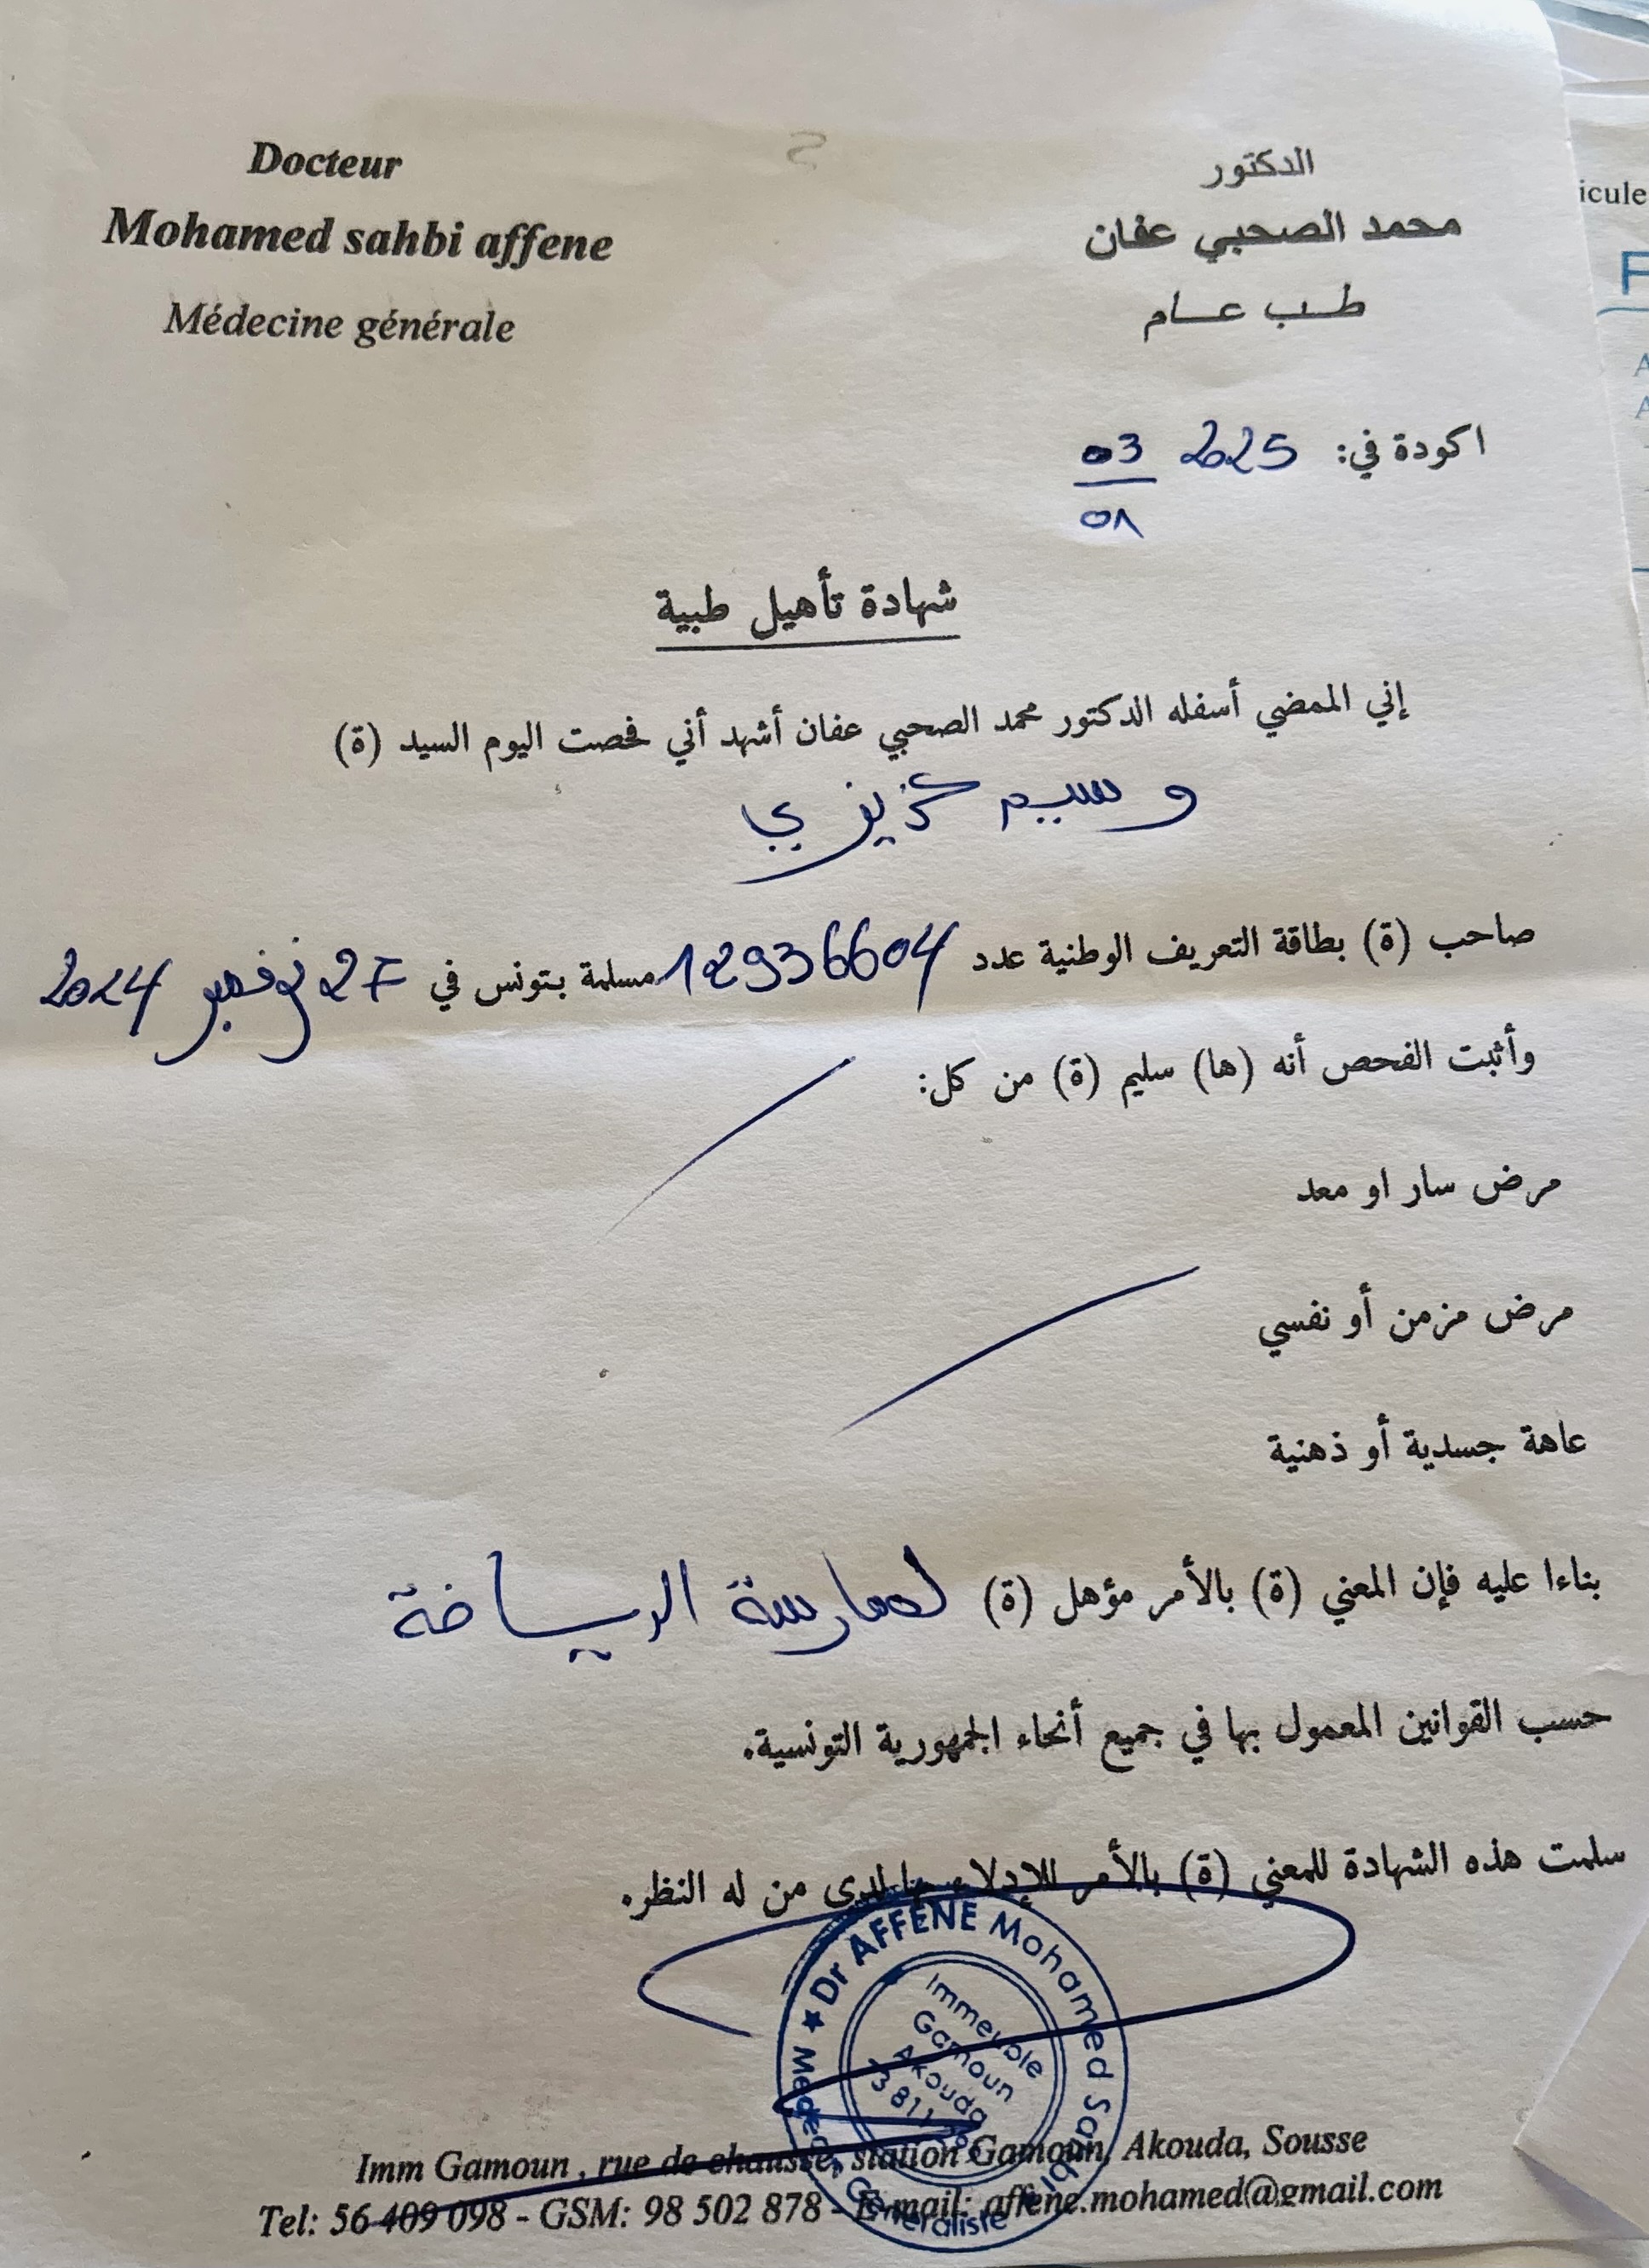 Docteur
Mohamed sahbi affene
Médecine générale
الدكتور
محمد الصحبي عفان
طب عام
اكودة في: 2025 03
01
شهادة تأهيل طبية
إني الممضي أسفله الدكتور محمد الصحبي عفان أشهد أني فحصت اليوم السيد (ة)
وسيم
صاحب (ة) بطاقة التعريف الوطنية عدد 12936604 مسلمة بتونس في 27 نوفمبر 2024
وأثبت الفحص أنه (ها) سليم (ة) من كل:
مرض سار او معد
مرض مزمن أو نفسي
عاهة جسدية أو ذهنية
بناءا عليه فإن المعني (ة) بالأمر مؤهل (ة) لممارسة الرياضة
حسب القوانين المعمول بها في جميع أنحاء الجمهورية التونسية.
سلمت هذه الشهادة للمعني (ة) بالأمر للإدلاء بها لدى من له النظر.
Dr AFFENE Mohamed Sahbi
Généraliste
Immeuble
Gamoun
Akouda
Imm Gamoun , rue de chausse, station Gamoun, Akouda, Sousse
Tel: 56 409 098 - GSM: 98 502 878 - E-mail: affene.mohamed@gmail.com
icule
F
A
A